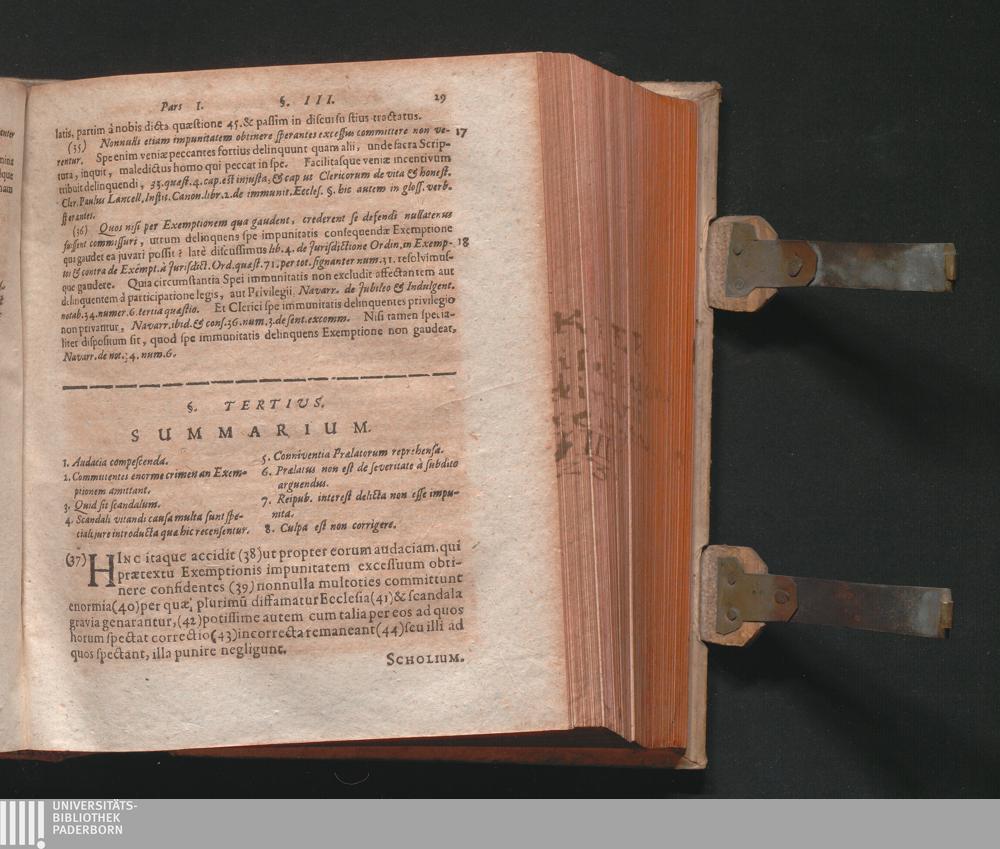 Pars I. §. III. 29
latis, partim à nobis dicta quæstione 45. & passim in discursu tractatus.
(35) Nonnulli etiam impunitatem obtinere sperantes excessus committere non ve- 17
rentur. Spe enim veniæ peccantes fortius delinquunt quam alii, unde sacra Scrip-
tura, inquit, maledictus homo qui peccat in spe. Facilitasque veniæ incentivum
tribuit delinquendi, 33. quæst. 4. cap. est injusta, & cap ut Clericorum de vita & honest.
Cler. Paulus Lancell. Instit. Canon. libr. 2. de immunit. Eccles. §. hic autem in gloss. verb.
sperantes.
(36) Quos nisi per Exemptionem qua gaudent, crederent se defendi nullatenus
fuissent commissuri, utrum delinquens spe impunitatis consequendæ Exemptione
qui gaudet ea juvari possit? latè discussimus lib. 4. de Jurisdictione Ordin. in Exemp- 18
tos & contra de Exempt. à Jurisdict. Ord. quæst. 71. per tot. signanter num. 31. resolvimus-
que gaudere. Quia circumstantia Spei immunitatis non excludit affectantem aut
delinquentem à participatione legis, aut Privilegii. Navarr. de Jubileo & Indulgent.
notab. 34. numer. 6. tertia quæstio. Et Clerici spe immunitatis delinquentes privilegio
non privantur, Navarr. ibid. & cons. 36. num. 3. de sent. excomm. Nisi tamen specia-
liter dispositum sit, quod spe immunitatis delinquens Exemptione non gaudeat,
Navarr. de not. 34. num. 6.
§. TERTIUS.
SUMMARIUM.
1. Audacia compescenda.
2. Committentes enorme crimen an Exem-
ptionem amittant.
3. Quid sit scandalum.
4. Scandali vitandi causa multa sunt spe-
ciali jure introducta quæ hic recensentur.
5. Conniventia Prælatorum reprehensa.
6. Prælatus non est de severitate à subdito
arguendus.
7. Reipub. interest delicta non esse impu-
nita.
8. Culpa est non corrigere.
(37) HINC itaque accidit (38) ut propter eorum audaciam, qui
prætextu Exemptionis impunitatem excessuum obti-
nere confidentes (39) nonnulla multoties committunt
enormia (40) per quæ, plurimū diffamatur Ecclesia (41) & scandala
gravia genarantur, (42) potissime autem cum talia per eos ad quos
horum spectat correctio (43) incorrecta remaneant (44) seu illi ad
quos spectant, illa punire negligunt.
SCHOLIUM.
UNIVERSITÄTS-
BIBLIOTHEK
PADERBORN